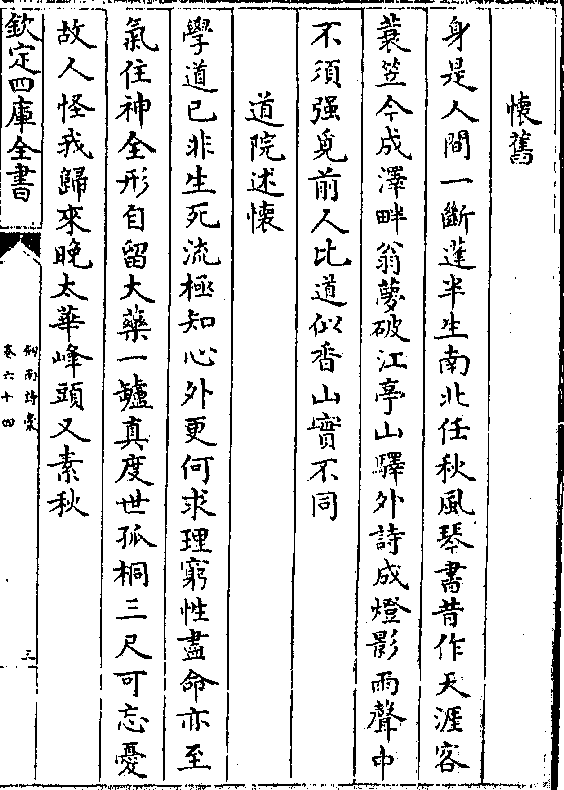 懷舊
身是人間一斷蓬半生南北任秋風琴書昔作天涯客
蓑笠今成澤畔翁夢破江亭山驛外詩成燈影雨聲中
不須强覓前人比道似香山實不同
道院述懷
學道已非生死流極知心外更何求理窮性盡命亦至
氣住神全形自留大藥一罏真度世孤桐三尺可忘憂
故人怪我歸來晚太華峰頭又素秋
欽定四庫全書
劍南詩稾
卷六十四
三